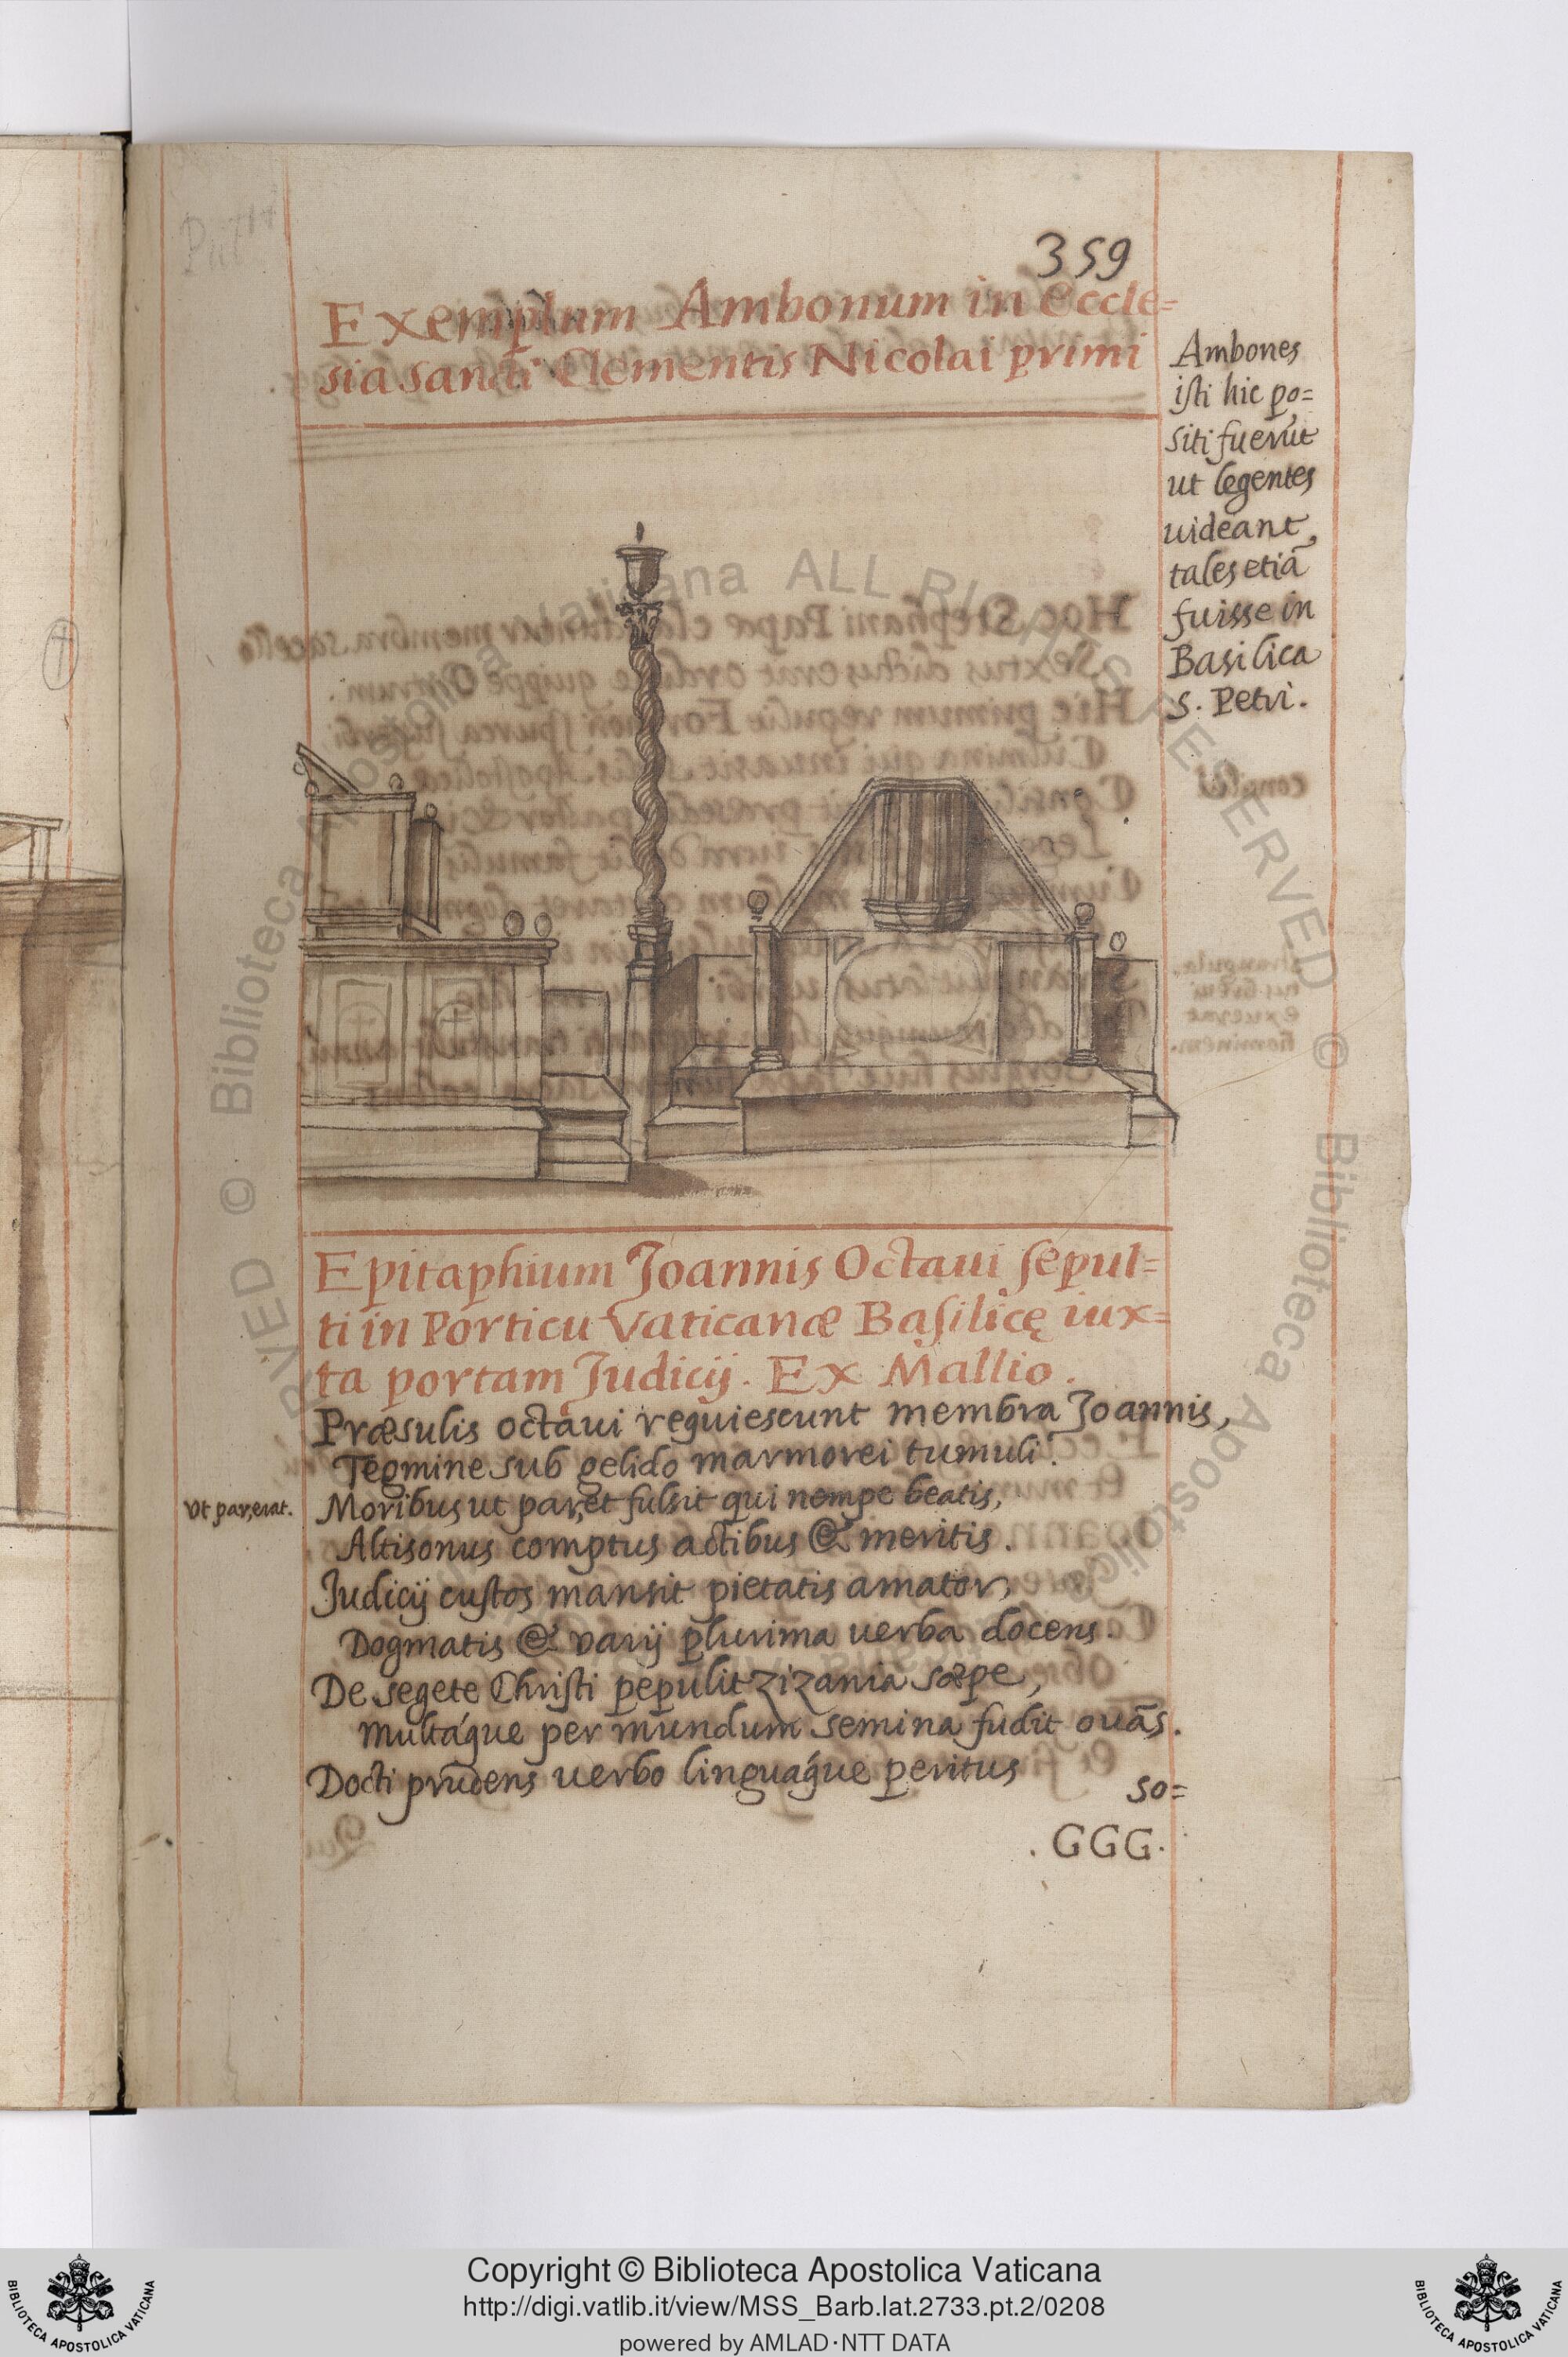 359
Exemplum Ambonum in Eccle=
sia sancti Clementis Nicolai primi
Ambones
isti hic po=
siti fuerūt
ut legentes
uideant,
tales etiā
fuisse in
Basilica
S. Petri.
Epitaphium Joannis Octaui sepul=
ti in Porticu Vaticanæ Basilicę iux=
ta portam Judicij. Ex Mallio.
Præsulis octaui requiescunt membra Joannis,
Tegmine sub gelido marmorei tumuli.
Vt par, erat.
Moribus ut par, et fulsit qui nempe beatis,
Altisonus comptus actibus & meritis.
Judicij custos mansit pietatis amator,
Dogmatis & varij plurima uerba docens.
De segete Christi pepulit zizania sæpe,
Multáque per mundum semina fudit ouās.
Docti prudens uerbo linguáque peritus
so=
.GGG.
Copyright © Biblioteca Apostolica Vaticana
http://digi.vatlib.it/view/MSS_Barb.lat.2733.pt.2/0208
powered by AMLAD·NTT DATA
BIBLIOTECA APOSTOLICA VATICANA
BIBLIOTECA APOSTOLICA VATICANA